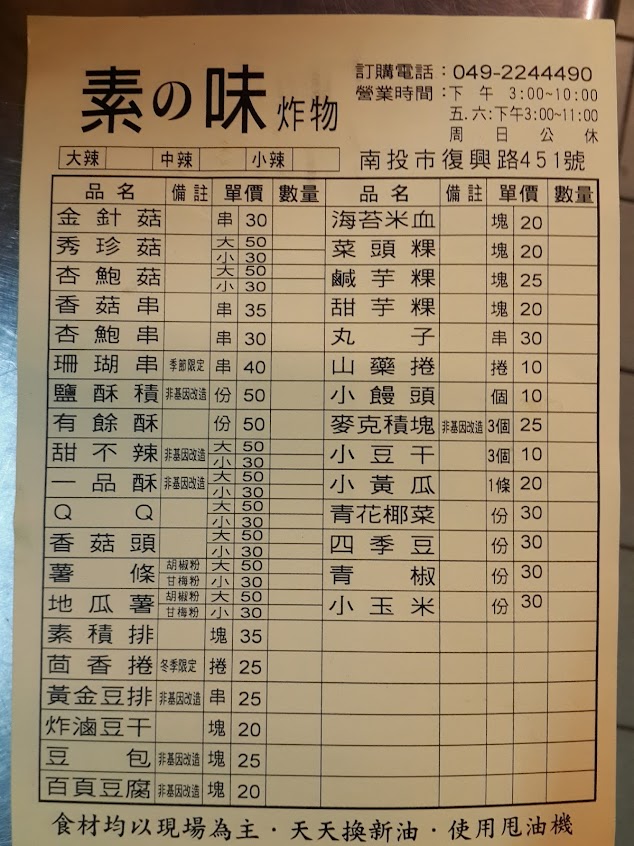 素の味 炸物
訂購電話：049-2244490
營業時間：下午 3:00~10:00
五.六:下午3:00~11:00
周日公休
大辣 中辣 小辣
南投市復興路451號
品名 備註 單價 數量 品名 備註 單價 數量
金針菇 串 30 海苔米血 塊 20
秀珍菇 大 50 小 30 菜頭粿 塊 20
杏鮑菇 大 50 小 30 鹹芋粿 塊 25
香菇串 串 35 甜芋粿 塊 20
杏鮑串 串 30 丸子 串 30
珊瑚串 季節限定 串 40 山藥捲 捲 10
鹽酥積 非基因改造 份 50 小饅頭 個 10
有餘酥 份 50 麥克積塊 非基因改造 3個 25
甜不辣 非基因改造 大 50 小 30 小豆干 3個 10
一品酥 非基因改造 大 50 小 30 小黃瓜 1條 20
QQ 大 50 小 30 青花椰菜 份 30
香菇頭 大 50 小 30 四季豆 份 30
薯條 胡椒粉 甘梅粉 大 50 小 30 青椒 份 30
地瓜薯 胡椒粉 甘梅粉 大 50 小 30 小玉米 份 30
素積排 塊 35
茴香捲 冬季限定 捲 25
黃金豆排 非基因改造 串 25
炸滷豆干 塊 20
豆包 非基因改造 塊 25
百頁豆腐 非基因改造 塊 20
食材均以現場為主·天天換新油·使用甩油機